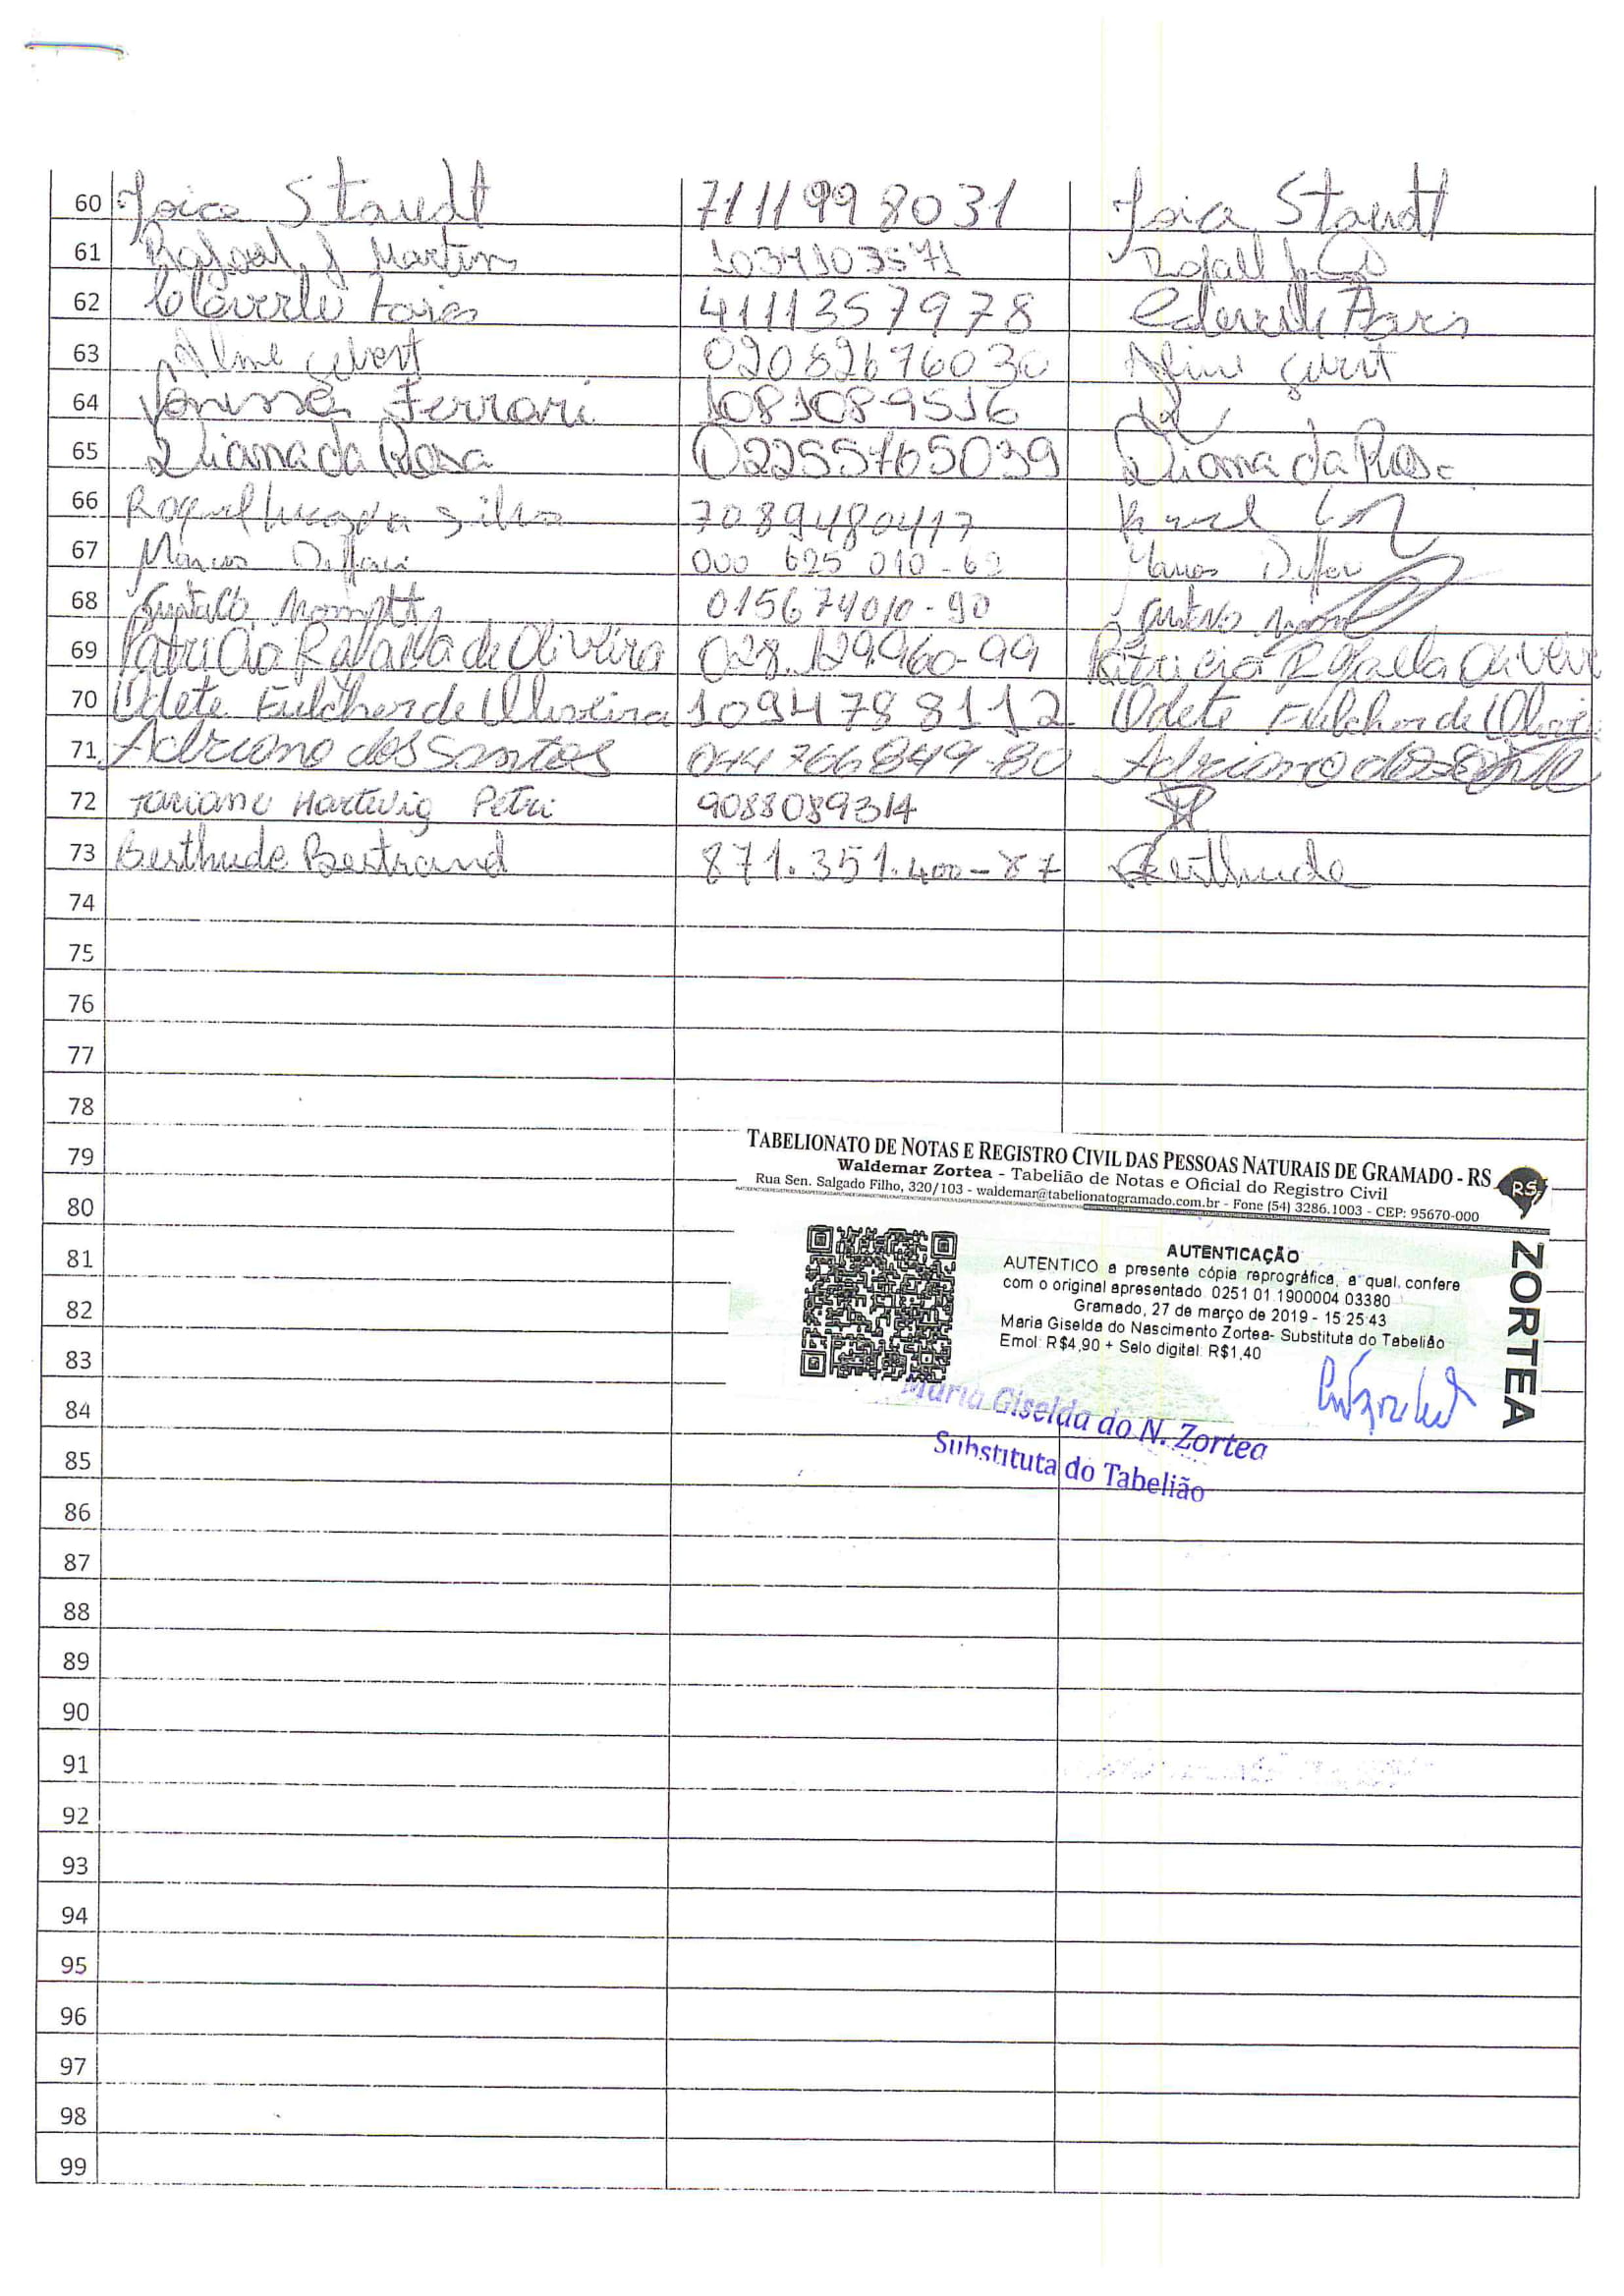 60 Joice Staudt 7111998031 Joice Staudt
61 Rafael J Martins 1034103571
62 4111357978
63 Aline 02082676030 Aline
64 Vanessa Ferrari 1081089516
65 Diana da Rosa 02255765039 Diana da Rosa
66 Raquel Silva 7089480417
67 Marcos 000 625 010-62 Marcos
68 Gustavo 015674010-90 Gustavo
69 Patricia Rafaella de Oliveira 028.129960-99 Patricia Rafaella Oliveir
70 Odete Fulcher de Oliveira 1094788112 Odete Fulcher de Olivei
71 Adriano dos Santos 044766849-80 Adriano dos Santos
72 Tariane Hartevig Petri 9088089314
73 Berthude Bertrand 871.351.400-87 Berthude
74
75
76
77
78
79
TABELIONATO DE NOTAS E REGISTRO CIVIL DAS PESSOAS NATURAIS DE GRAMADO - RS
Waldemar Zortea - Tabelião de Notas e Oficial do Registro Civil
Rua Sen. Salgado Filho, 320/103 - waldemar@tabelionatogramado.com.br - Fone (54) 3286.1003 - CEP: 95670-000
RS
ZORTEA
80
81
AUTENTICAÇÃO
AUTENTICO a presente cópia reprográfica, a qual confere
com o original apresentado 0251 01 1900004 03380
Gramado, 27 de março de 2019 - 15:25:43
Maria Giselda do Nascimento Zortea- Substituta do Tabelião
Emol: R$4,90 + Selo digital: R$1,40
82
83
84
Maria Giselda do N. Zortea
Substituta do Tabelião
85
86
87
88
89
90
91
92
93
94
95
96
97
98
99